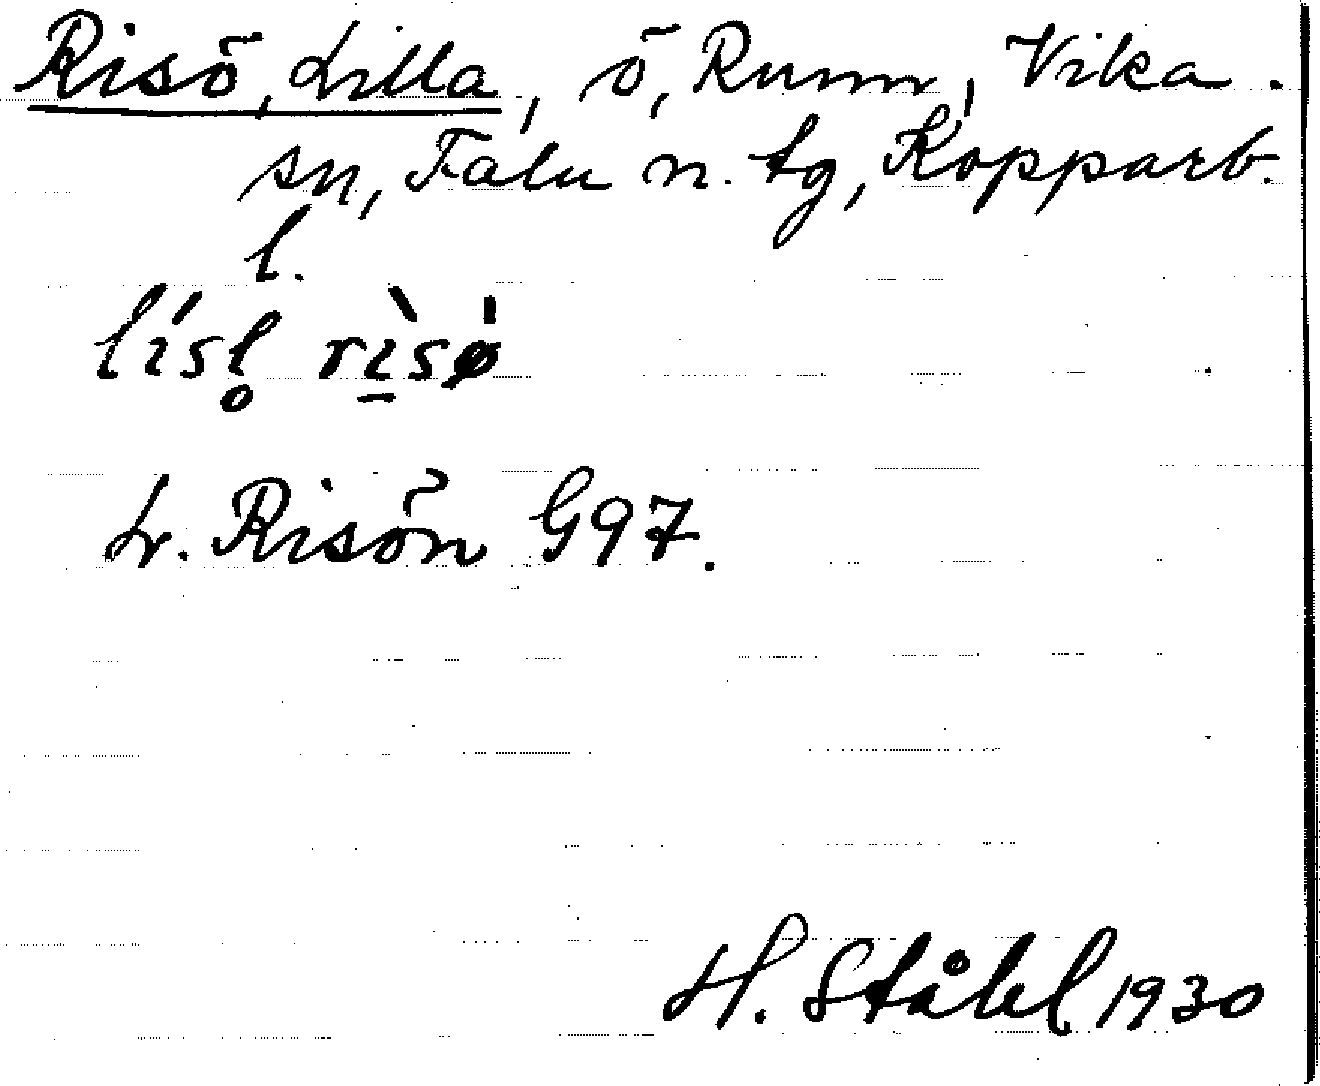 Risö, Lilla, ö, Runn, Vika.
sn, Falu n. tg, Kopparb.
l.
lísl̥ rı̱̀sø̍
L. Risön G97.
H. Ståhl 1930